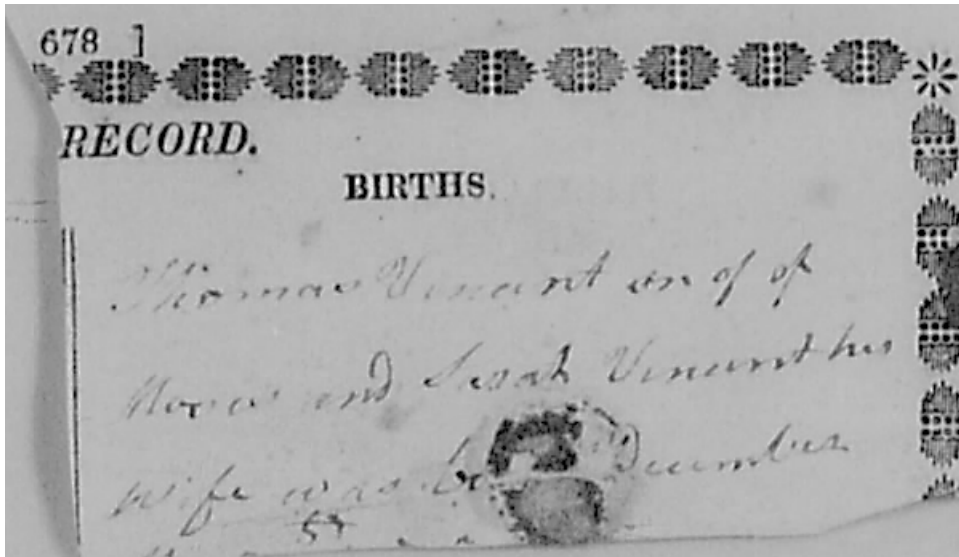 678 ]
RECORD.
BIRTHS.
Thomas Vincent on of of
Moses and Sarah Vincent his
wife was December